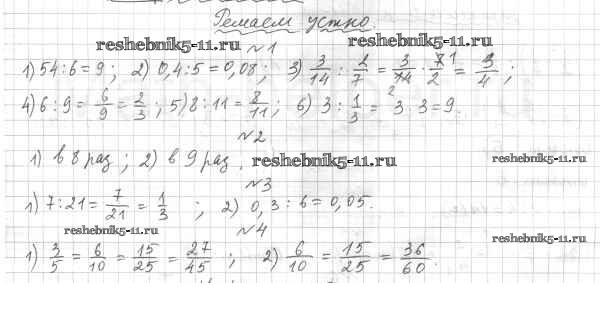 Решаем устно
reshebnik5-11.ru reshebnik5-11.ru
№1
1) 54:6=9; 2) 0,4:5=0,08; 3) 3/14 : 2/7 = 3/14 · 7/2 = 3/4;
4) 6:9 = 6/9 = 2/3; 5) 8:11 = 8/11; 6) 3 : 1/3 = 3·3=9.
№2
1) в 8 раз; 2) в 9 раз. reshebnik5-11.ru reshebnik5-11.ru
№3
1) 7:21 = 7/21 = 1/3; 2) 0,3:6=0,05.
reshebnik5-11.ru №4 reshebnik5-11.ru
1) 3/5 = 6/10 = 15/25 = 27/45; 2) 6/10 = 15/25 = 36/60.